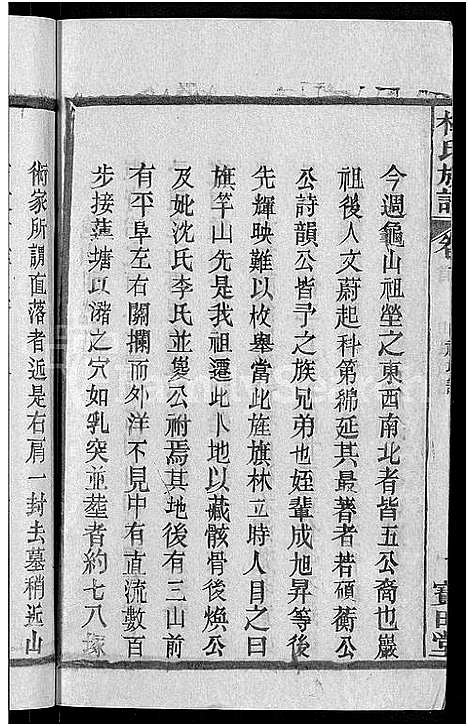 今週龜山祖塋之東西南北者皆五公裔也嚴
祖後人文蔚起科第綿延其最著者若碩衡公
公詩韻公皆予之族兄弟也姪輩成旭昇等後
先輝映難以枚舉當此旌旗林立時人目之曰
旗竿山先是我祖遷此卜地以藏骸骨後煥公
及妣沈氏李氏並㸑公祔焉其地後有三山前
有平阜左右關攔而外洋不見中有直流數百
步接蓮塘以瀦之穴如乳突並塟者約七八塚
術家所謂直落者近是右肩一封去墓稍近山
氏族譜
卷
堂